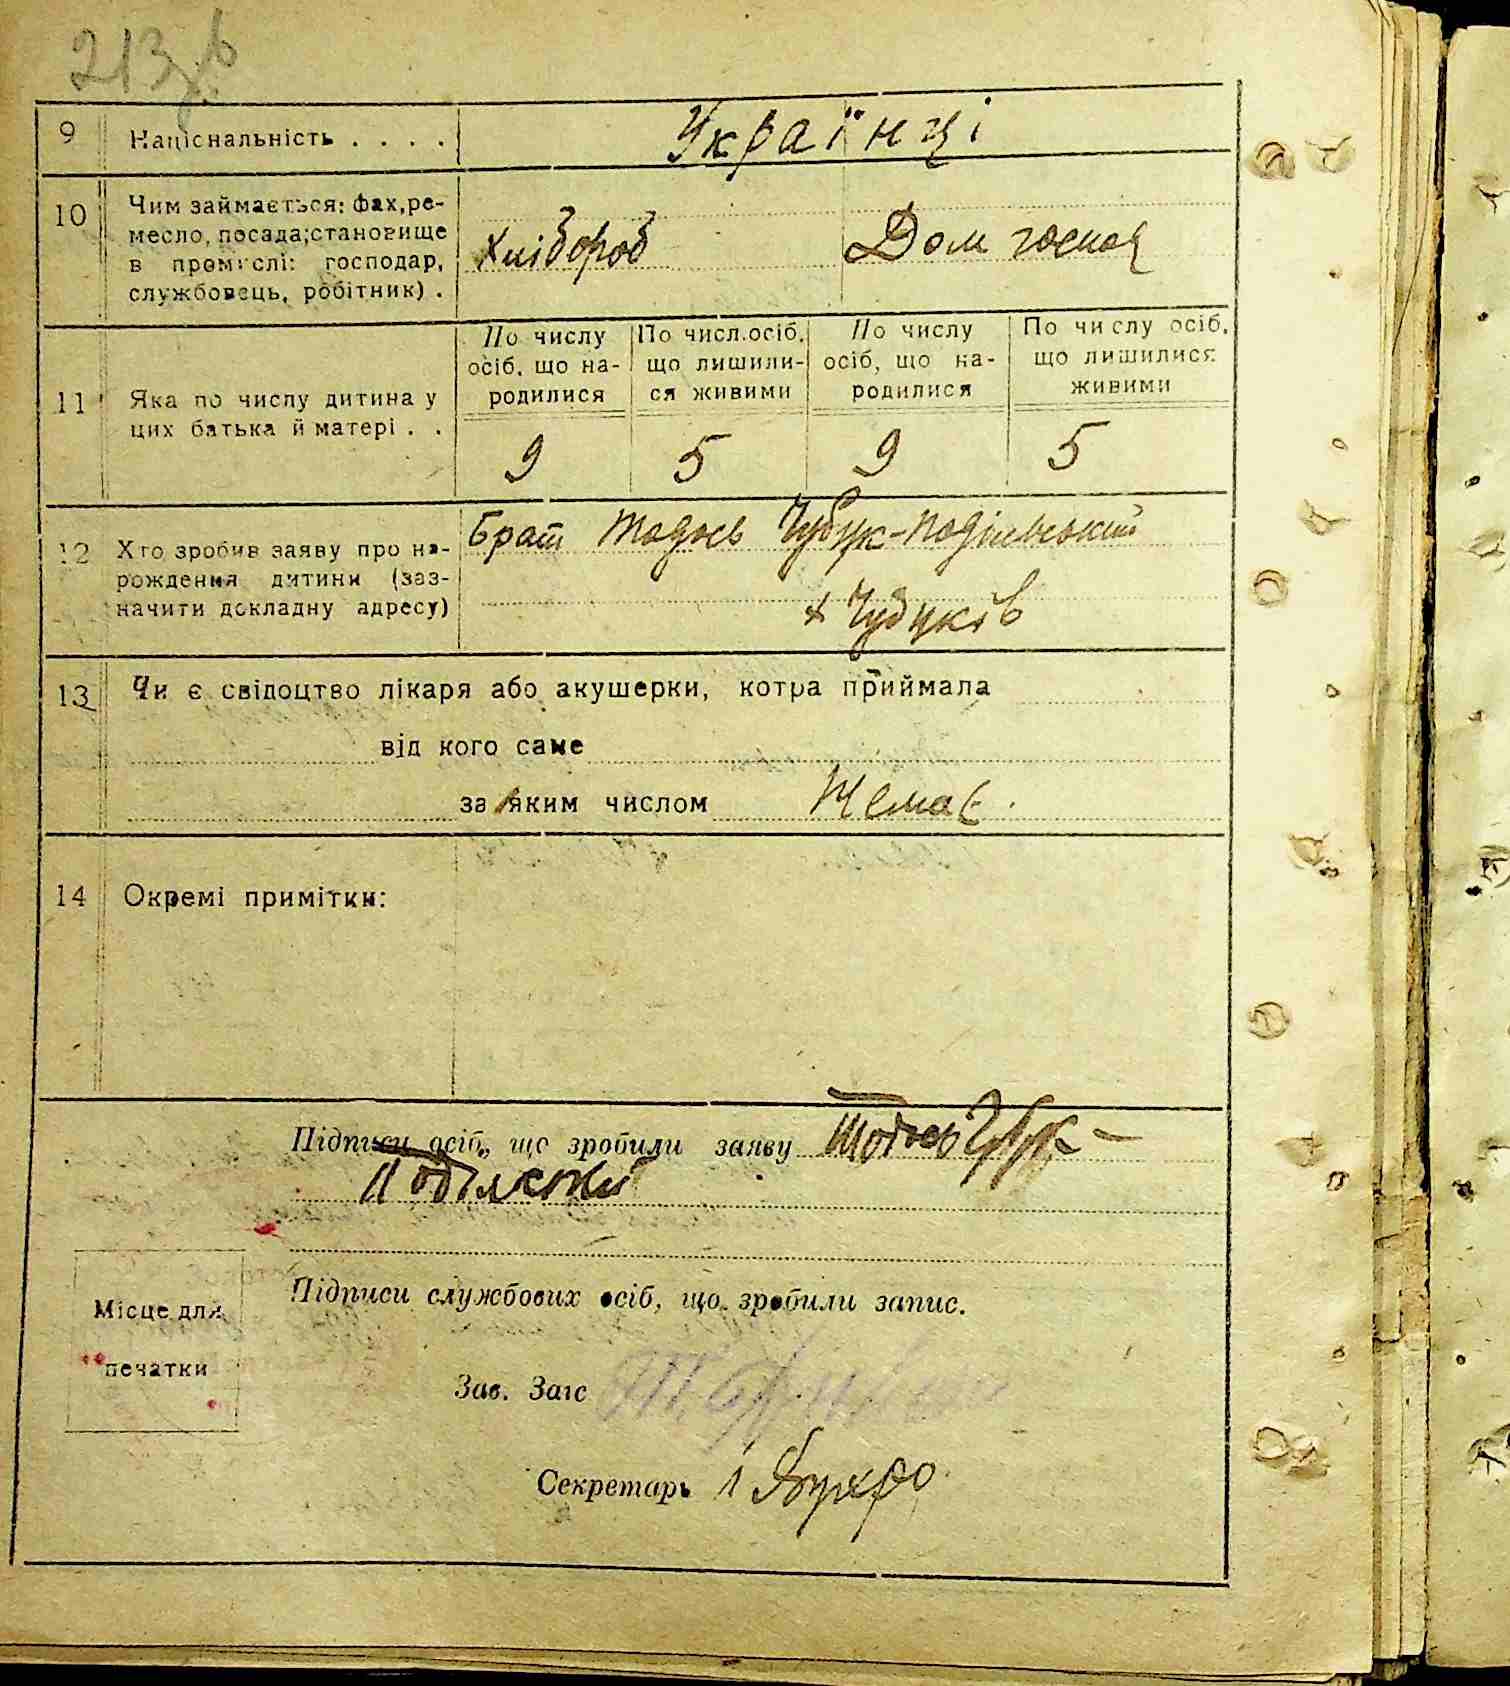 213 зв
9 Національність . . . . Українці
10 Чим займається: фах, ре-
месло, посада; становище
в промислі: господар,
службовець, робітник) .
Хлібороб Дом господ
По числу осіб, що на-родилися
По числ. осіб, що лишили-ся живими
По числу осіб, що на-родилися
По числу осіб, що лишилися живими
11 Яка по числу дитина у
цих батька й матері . .
9 5 9 5
12 Хто зробив заяву про на-
рождення дитини (заз-
начити докладну адресу)
Брат Тодось Чубук-Подільський
х Чубуків
13 Чи є свідоцтво лікаря або акушерки, котра приймала
від кого саме
за яким числом Немає.
14 Окремі примітки:
Підписи осіб, що зробили заяву Тодось Чубук-
Подільский
Підписи службових осіб, що зробили запис.
Місце для
печатки
Зав. Загс
Секретарь